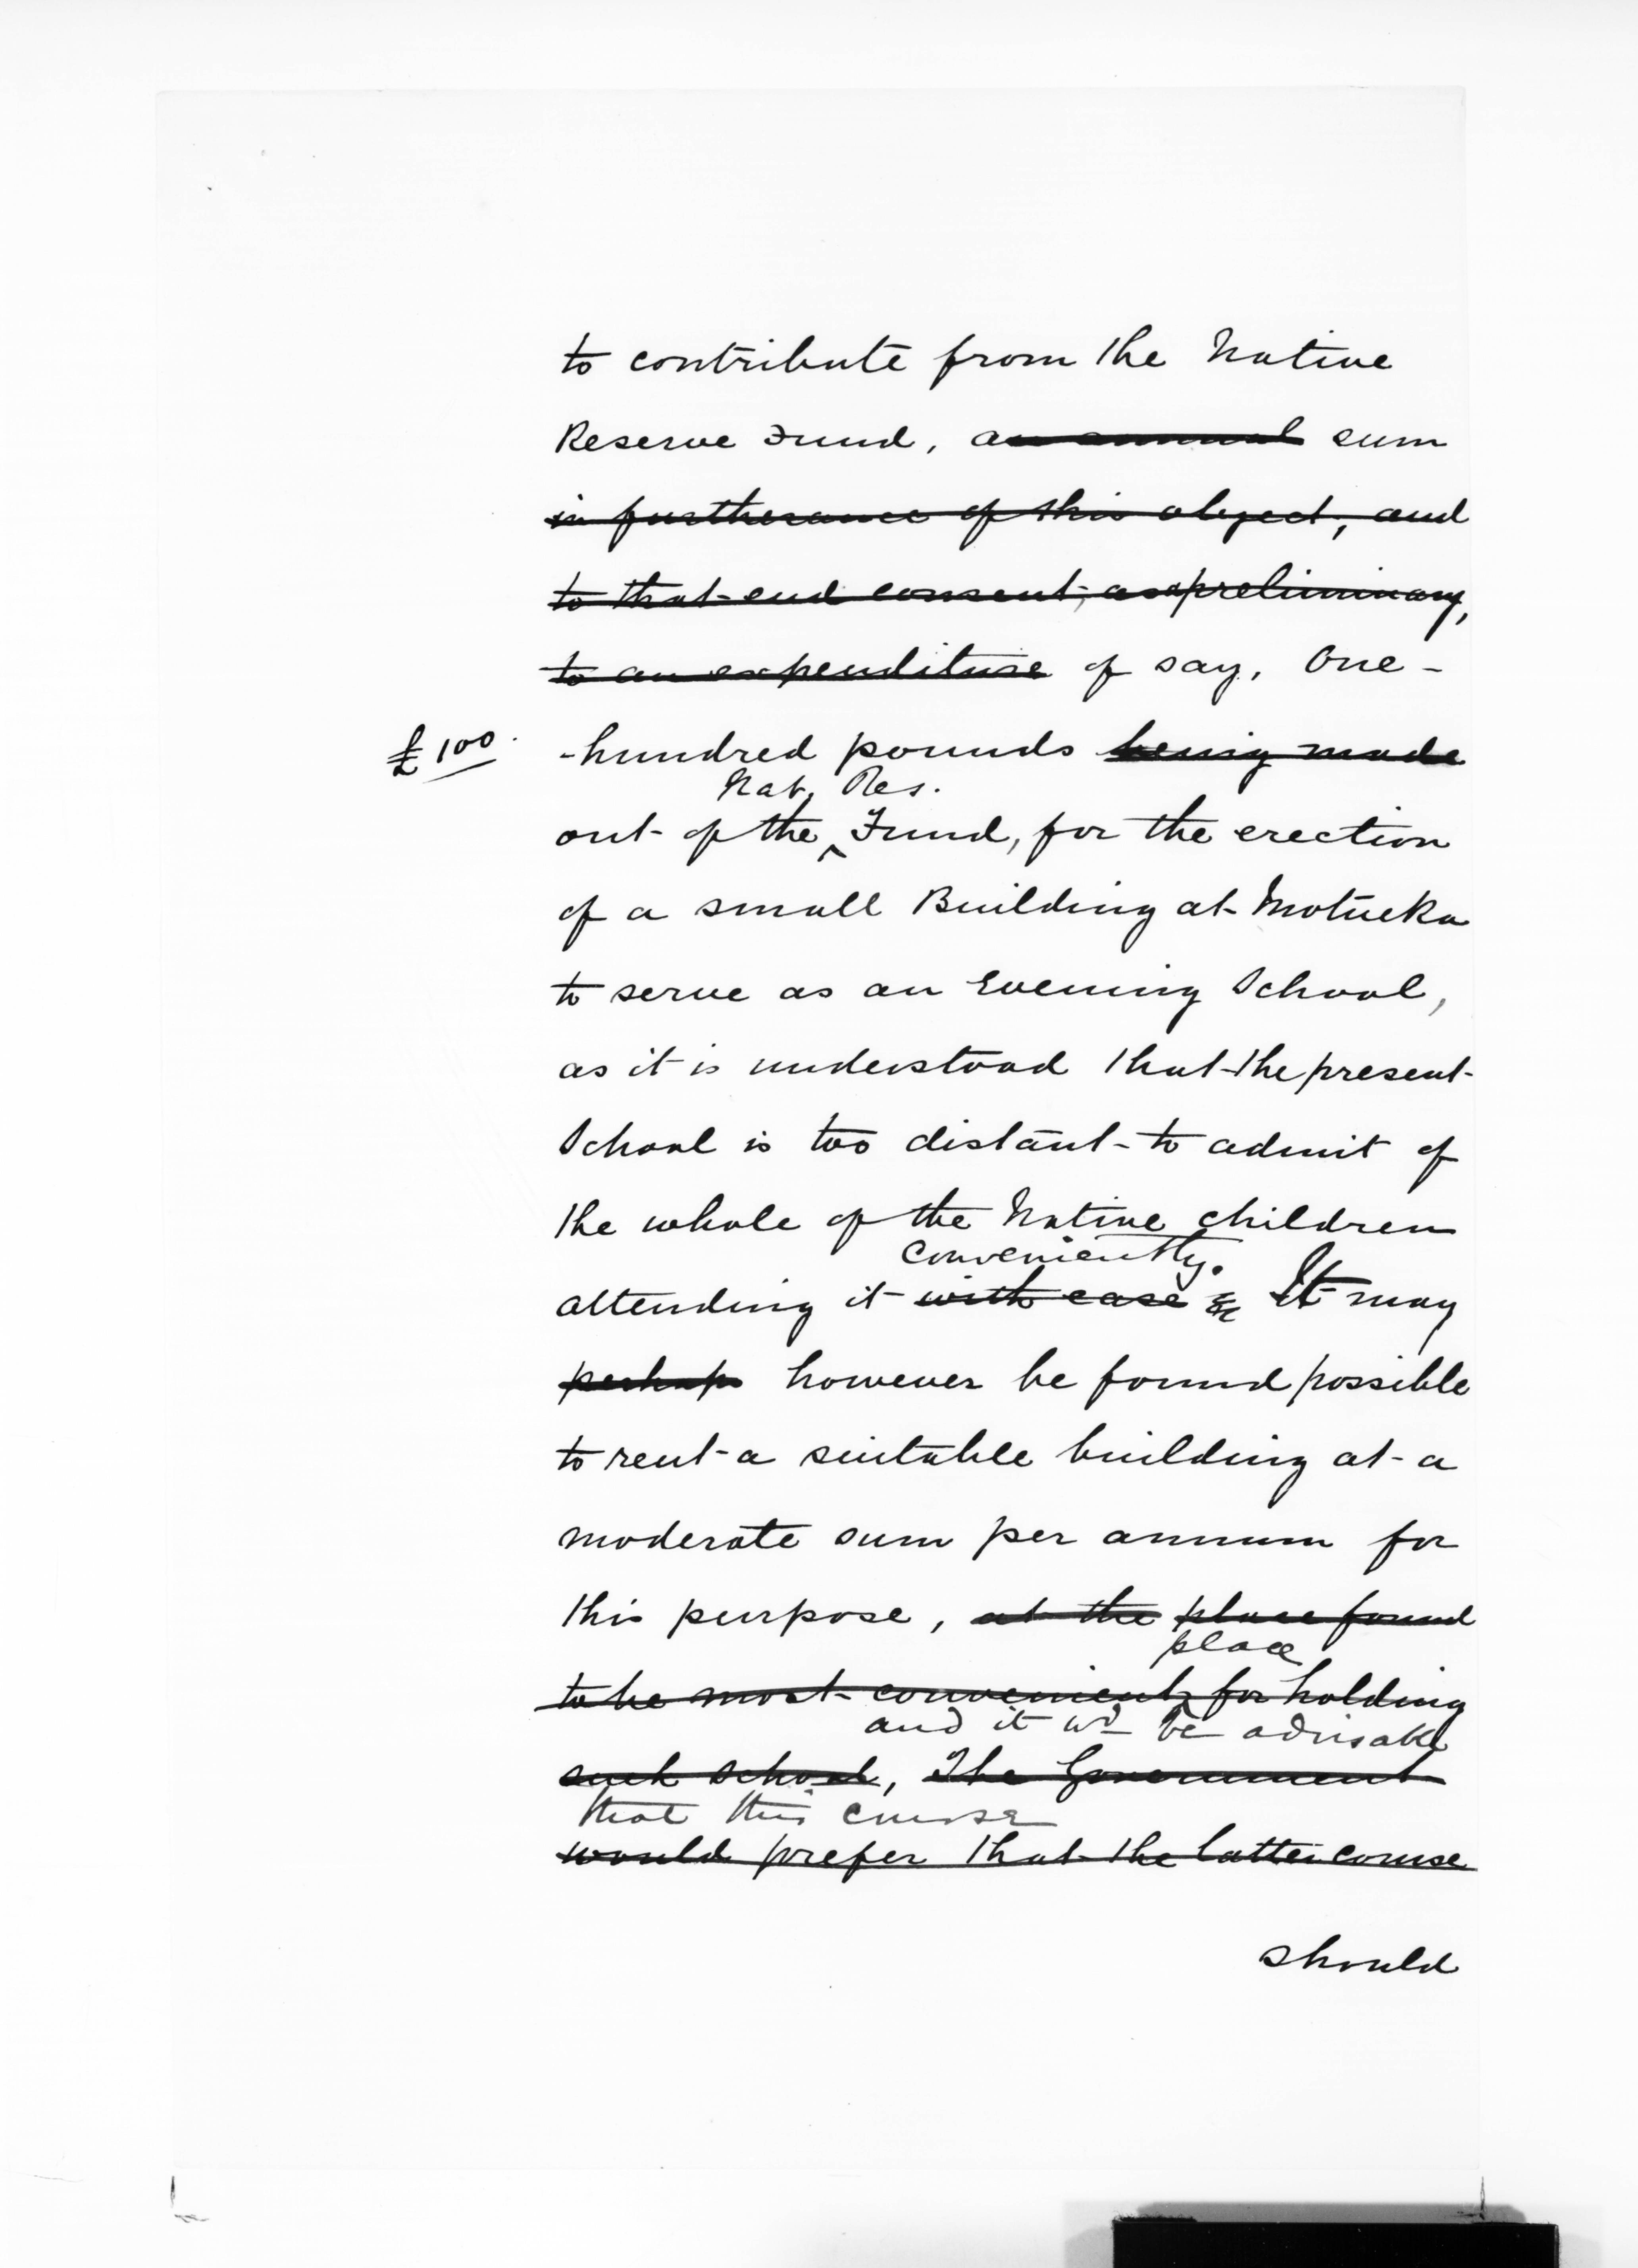 to contribute from the Native
Reserve Fund, an annual sum
in furtherance of this object, and
to that end consent, as a preliminary,
to an expenditure of say, One-
£100.
-hundred pounds being made
Nat. Res.
out of the ^ Fund, for the erection
of a small Building at Motueka
to serve as an Evening School,
as it is understood that the present
School is too distant to admit of
the whole of the Native children
conveniently.
attending it with ease & It may
perhaps however be found possible
to rent a suitable building at a
moderate sum per annum for
this purpose, at the place found
place
to be most convenient for holding
and it wd be advisable
such school, The Government
that this course
would prefer that the latter course
should